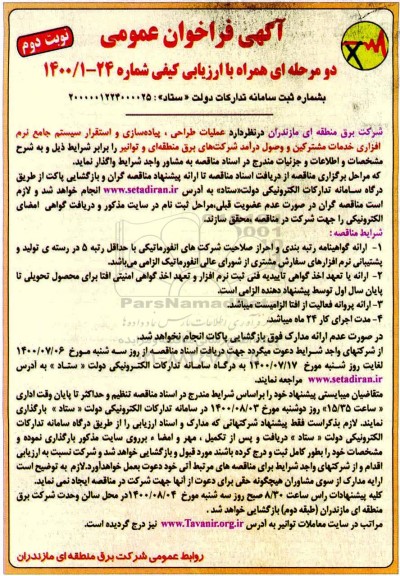 آگهی فراخوان عمومی
نوبت دوم
دو مرحله ای همراه با ارزیابی کیفی شماره ۲۴-۱۴۰۰/۱
بشماره ثبت سامانه تدارکات دولت «ستاد»: ۲۰۰۰۰۰۱۲۲۴۰۰۰۰۲۵
شرکت برق منطقه ای مازندران درنظردارد عملیات طراحی ، پیاده‌سازی و استقرار سیستم جامع نرم
افزاری خدمات مشترکین و وصول درآمد شرکت‌های برق منطقه‌ای و توانیر را برابر شرایط ذیل و به شرح
مشخصات و اطلاعات و جزئیات مندرج در اسناد مناقصه به مشاور واجد شرایط واگذار نماید.
که مراحل برگزاری مناقصه از دریافت اسناد مناقصه تا ارائه پیشنهاد مناقصه گران و بازگشایی پاکت از طریق
درگاه سامانه تدارکات الکترونیکی دولت«ستاد» به آدرس www.setadiran.ir انجام خواهد شد و لازم
است مناقصه گران در صورت عدم عضویت قبلی،مراحل ثبت نام در سایت مذکور و دریافت گواهی امضای
الکترونیکی را جهت شرکت در مناقصه محقق سازند.
شرایط مناقصه :
۱- ارائه گواهینامه رتبه بندی و احراز صلاحیت شرکت های انفورماتیکی با حداقل رتبه ۵ در رسته ی تولید و
پشتیبانی نرم افزارهای سفارش مشتری از شورای عالی انفورماتیک الزامی می‌باشد.
۲- ارائه یا تعهد اخذ گواهی تاییدیه فنی ثبت نرم افزار و تعهد اخذ گواهی امنیتی افتا برای محصول تحویلی تا
پایان سال اول توسط پیشنهاد دهنده الزامی است.
۳- ارائه پروانه فعالیت از افتا الزامیست میباشد.
۴- مدت اجرای کار ۲۴ ماه میباشد.
در صورت عدم ارائه مدارک فوق بازگشایی پاکات انجام نخواهد شد.
از شرکتهای واجد شرایط دعوت میگردد جهت دریافت اسناد مناقصه از روز سه شنبه مورخ ۱۴۰۰/۰۷/۰۶
لغایت روز شنبه مورخ ۱۴۰۰/۰۷/۱۷ به درگاه سامانه تدارکات الکترونیکی دولت « ستاد » به آدرس
www.setadiran.ir مراجعه نمایند.
متقاضیان میبایستی پیشنهاد خود را براساس شرایط مندرج در اسناد مناقصه تنظیم و حداکثر تا پایان وقت اداری
« ساعت ۱۵/۳۵» روز دوشنبه مورخ ۱۴۰۰/۰۸/۰۳ در سامانه تدارکات الکترونیکی دولت « ستاد » بارگذاری
نمایند. لازم بذکراست فقط پیشنهاد شرکتهائی که مدارک و اسناد ارزیابی را از طریق درگاه سامانه تدارکات
الکترونیکی دولت « ستاد » دریافت و پس از تکمیل ، مهر و امضاء برروی سایت مذکور بارگذاری نموده و
مشخصات خود را بطور کامل ثبت و درج کرده باشند مورد قبول و بازگشایی خواهد شد و شرکت نسبت به ارزیابی
اقدام و از شرکتهای واجد شرایط برای مناقصه های مرتبط آتی خود دعوت بعمل خواهدآورد.لازم به توضیح است
ارایه مدارک از سوی مشاوران هیچگونه حقی برای دعوت از آنها جهت شرکت در مناقصه ایجاد نمی نماید.
کلیه پیشنهادات راس ساعت ۸/۳۰ صبح روز سه شنبه مورخ ۱۴۰۰/۰۸/۰۴در محل سالن وحدت شرکت برق
منطقه ای مازندران (طبقه دوم) بازگشایی خواهد شد .
مراتب در سایت معاملات توانیر به آدرس www.Tavanir.org.ir نیز درج گردیده است.
روابط عمومی شرکت برق منطقه ای مازندران